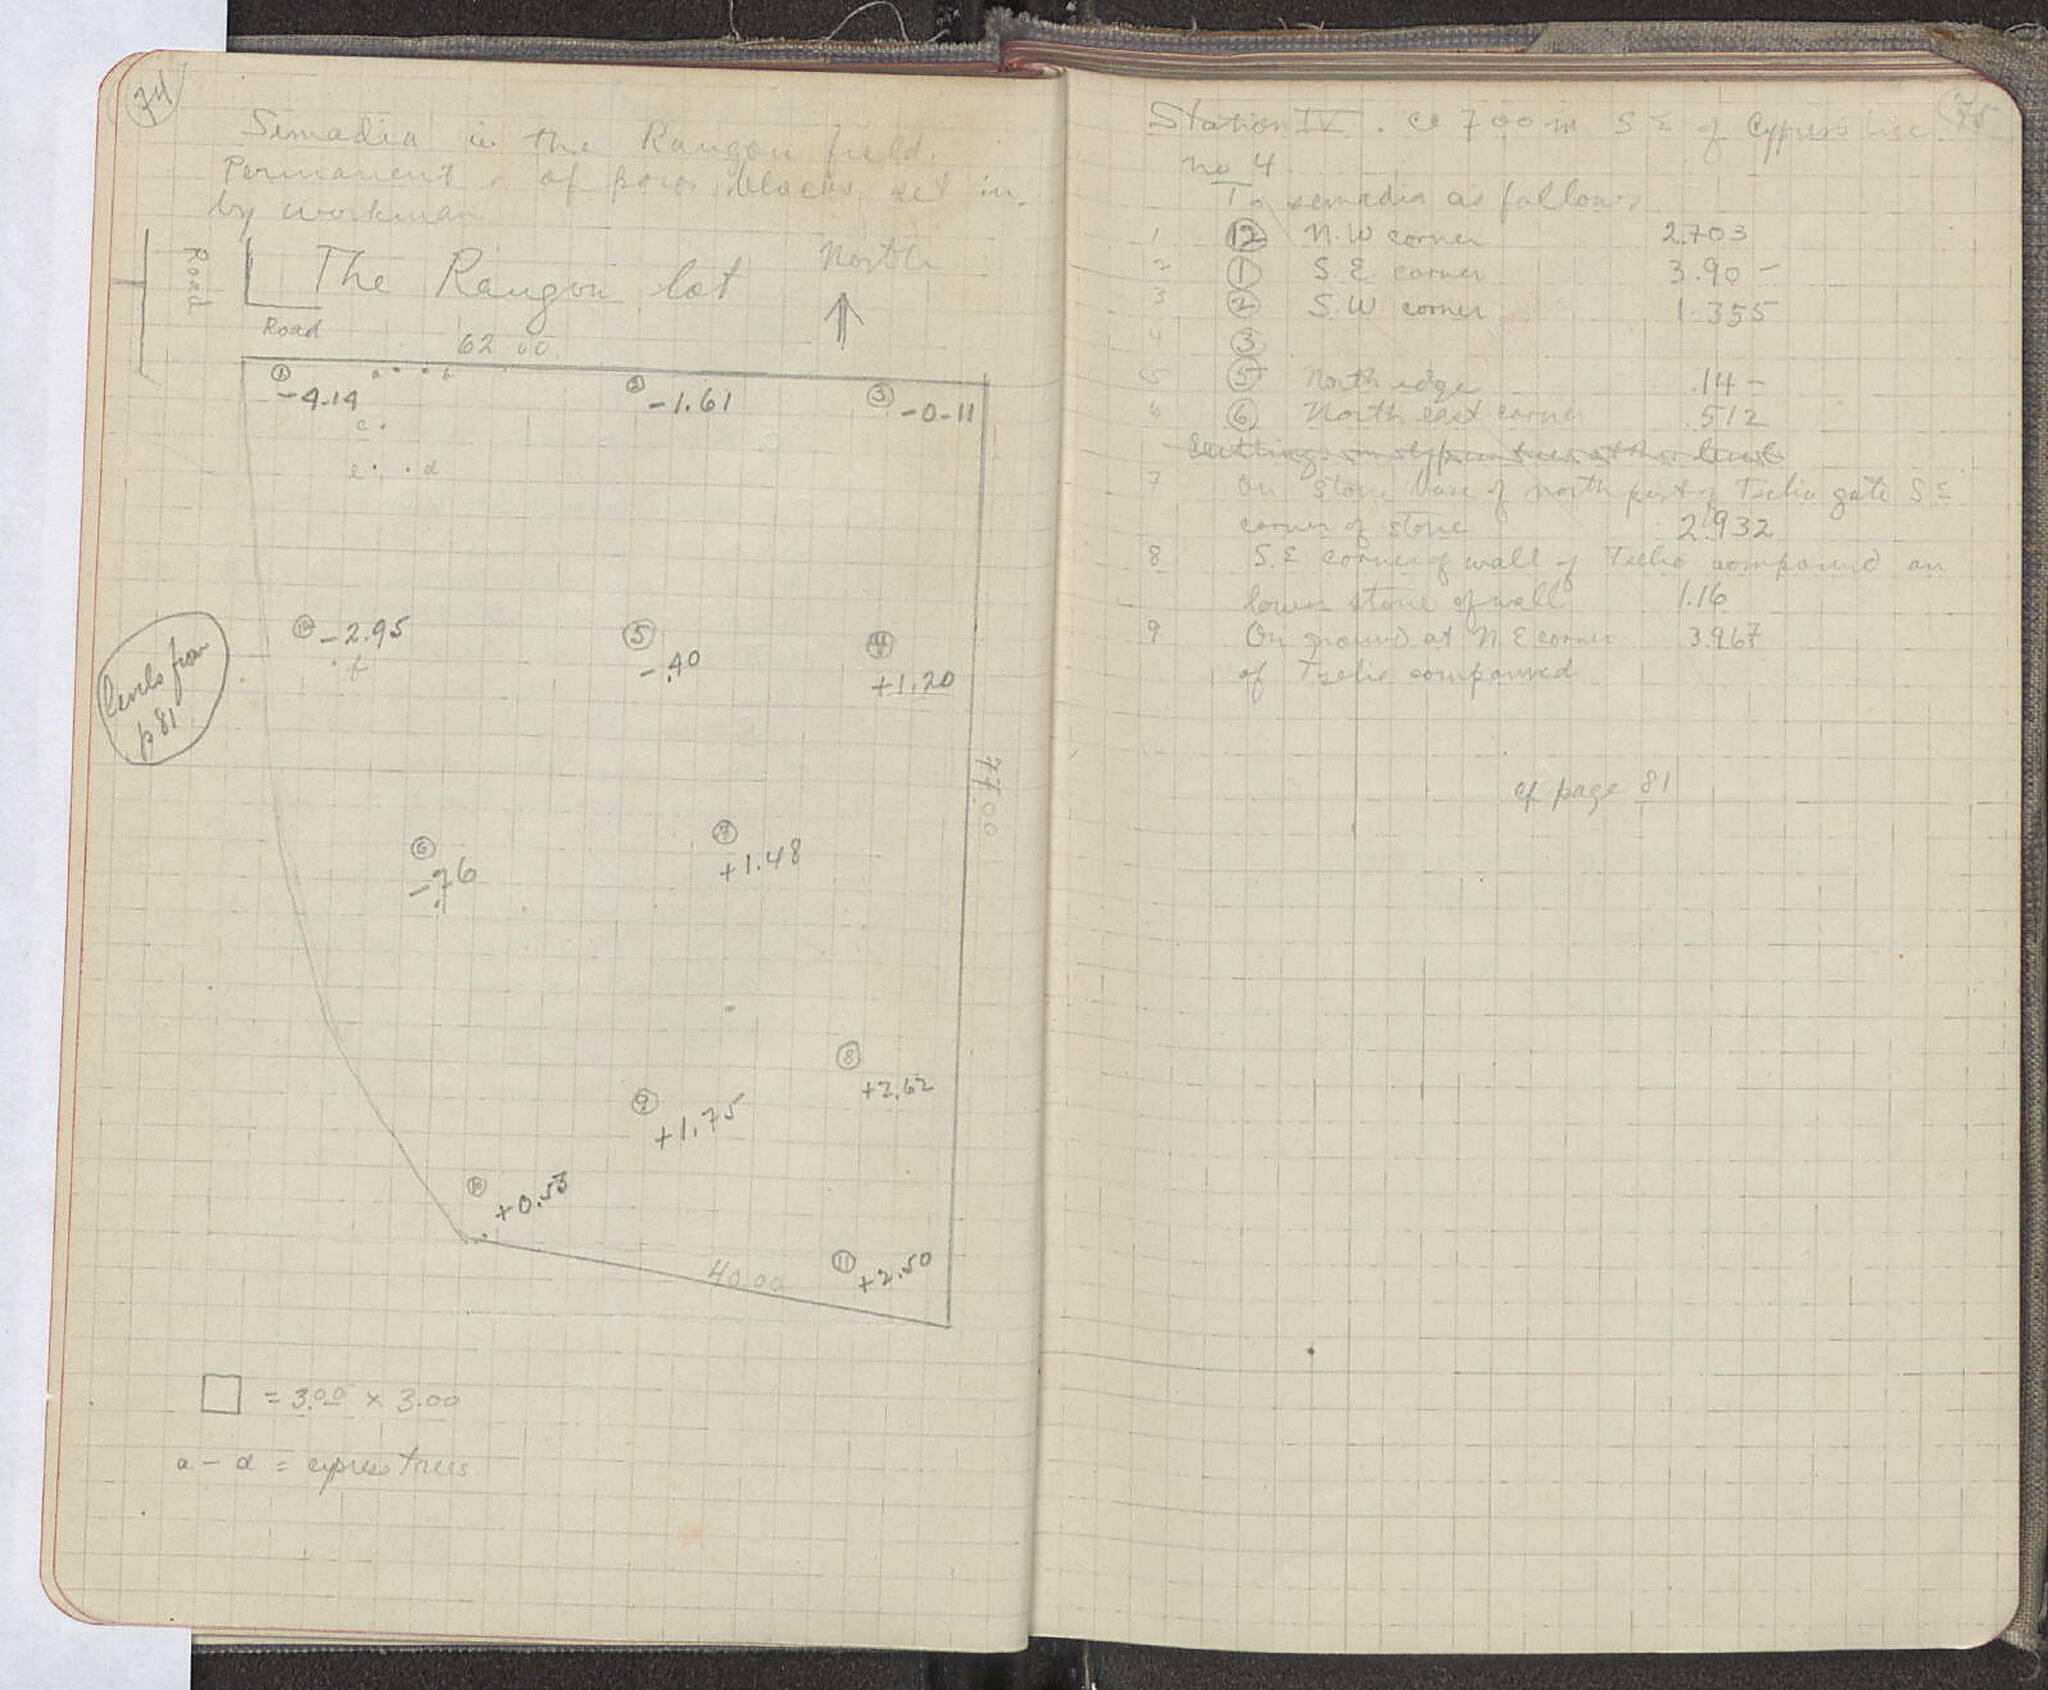 74
Semadia in the Rangou field.
Permanent - of poros blocks set in
by workman
Road
The Rangou lot
North
Road
62.00
1 a b 2 3
-4.14 -1.61 -0.11
c
e d
12 -2.95 5 4
f -.40 +1.20
levels from
p 81
77.00
6 7
-.76 +1.48
8
+2.62
9
+1.75
10
+0.53
40.00 11 +2.50
= 3.00 x 3.00
a - d = cypress trees
75
Station IV. ca 700 m S E of Cypress tree
no 4
To semadia as follows
1 12 N.W corner 2.703
2 1 S.E. corner 3.90 -
3 2 S.W corner 1.355
4 3
5 5 North edge .14 -
6 6 North east corner .512
7 On stone base of north post of Tselio gate S E
corner of stone 2.932
8 S.E corner of wall of Tselio compound on
lower stone of wall 1.16
9 On ground at N.E corner 3.967
of Tselio compound
cf page 81